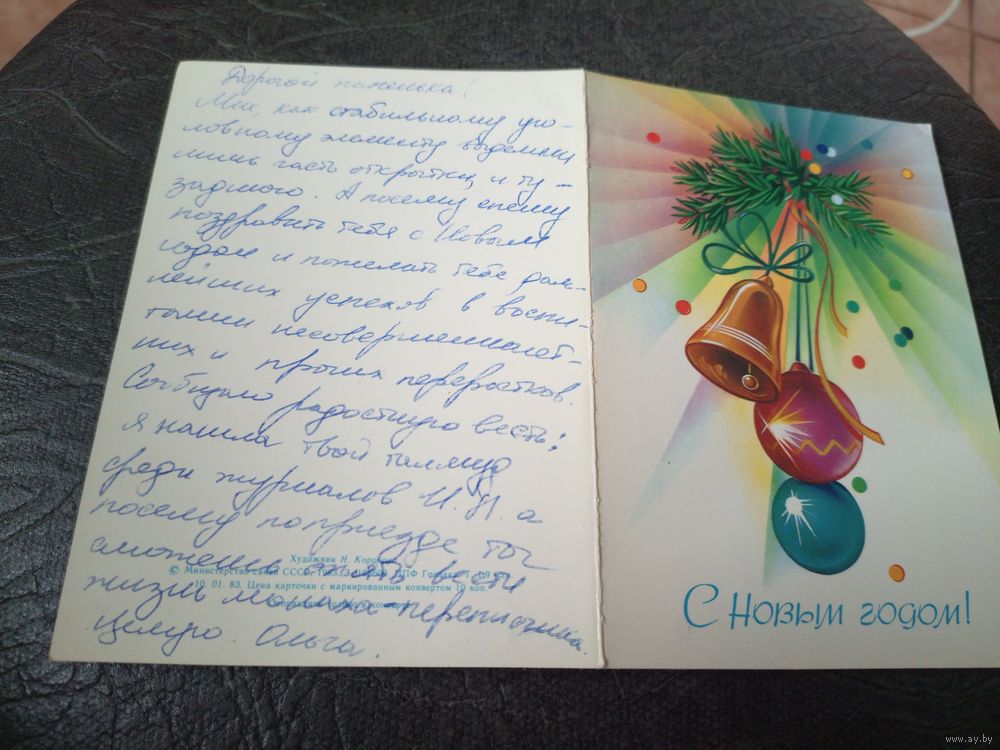 Дорогой папенька!
Мне, как стабильному уго-
ловному элементу выделили
лишь часть открытки, и ту -
заднюю. А посему спешу
поздравить тебя с Новым
годом и пожелать тебе даль-
нейших успехов в воспи-
тании несовершеннолет-
них и прочих переростков.
Сообщаю радостную весть:
я нашла твой талмуд
среди журналов И.П. а
посему по приезде ты
сможешь вести
жизнь монаха-переписчика.
Целую. Ольга.
Художник Н. Коробова
© Министерство связи СССР, 1983.
10. 01. 83. Цена карточки с маркированным конвертом 10 коп.
С Новым годом!
www.ay.by